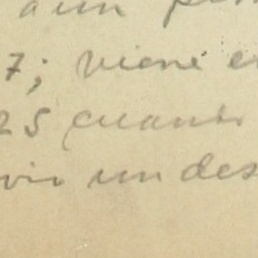 aun
7; viene e
25 cuanto
vir un des